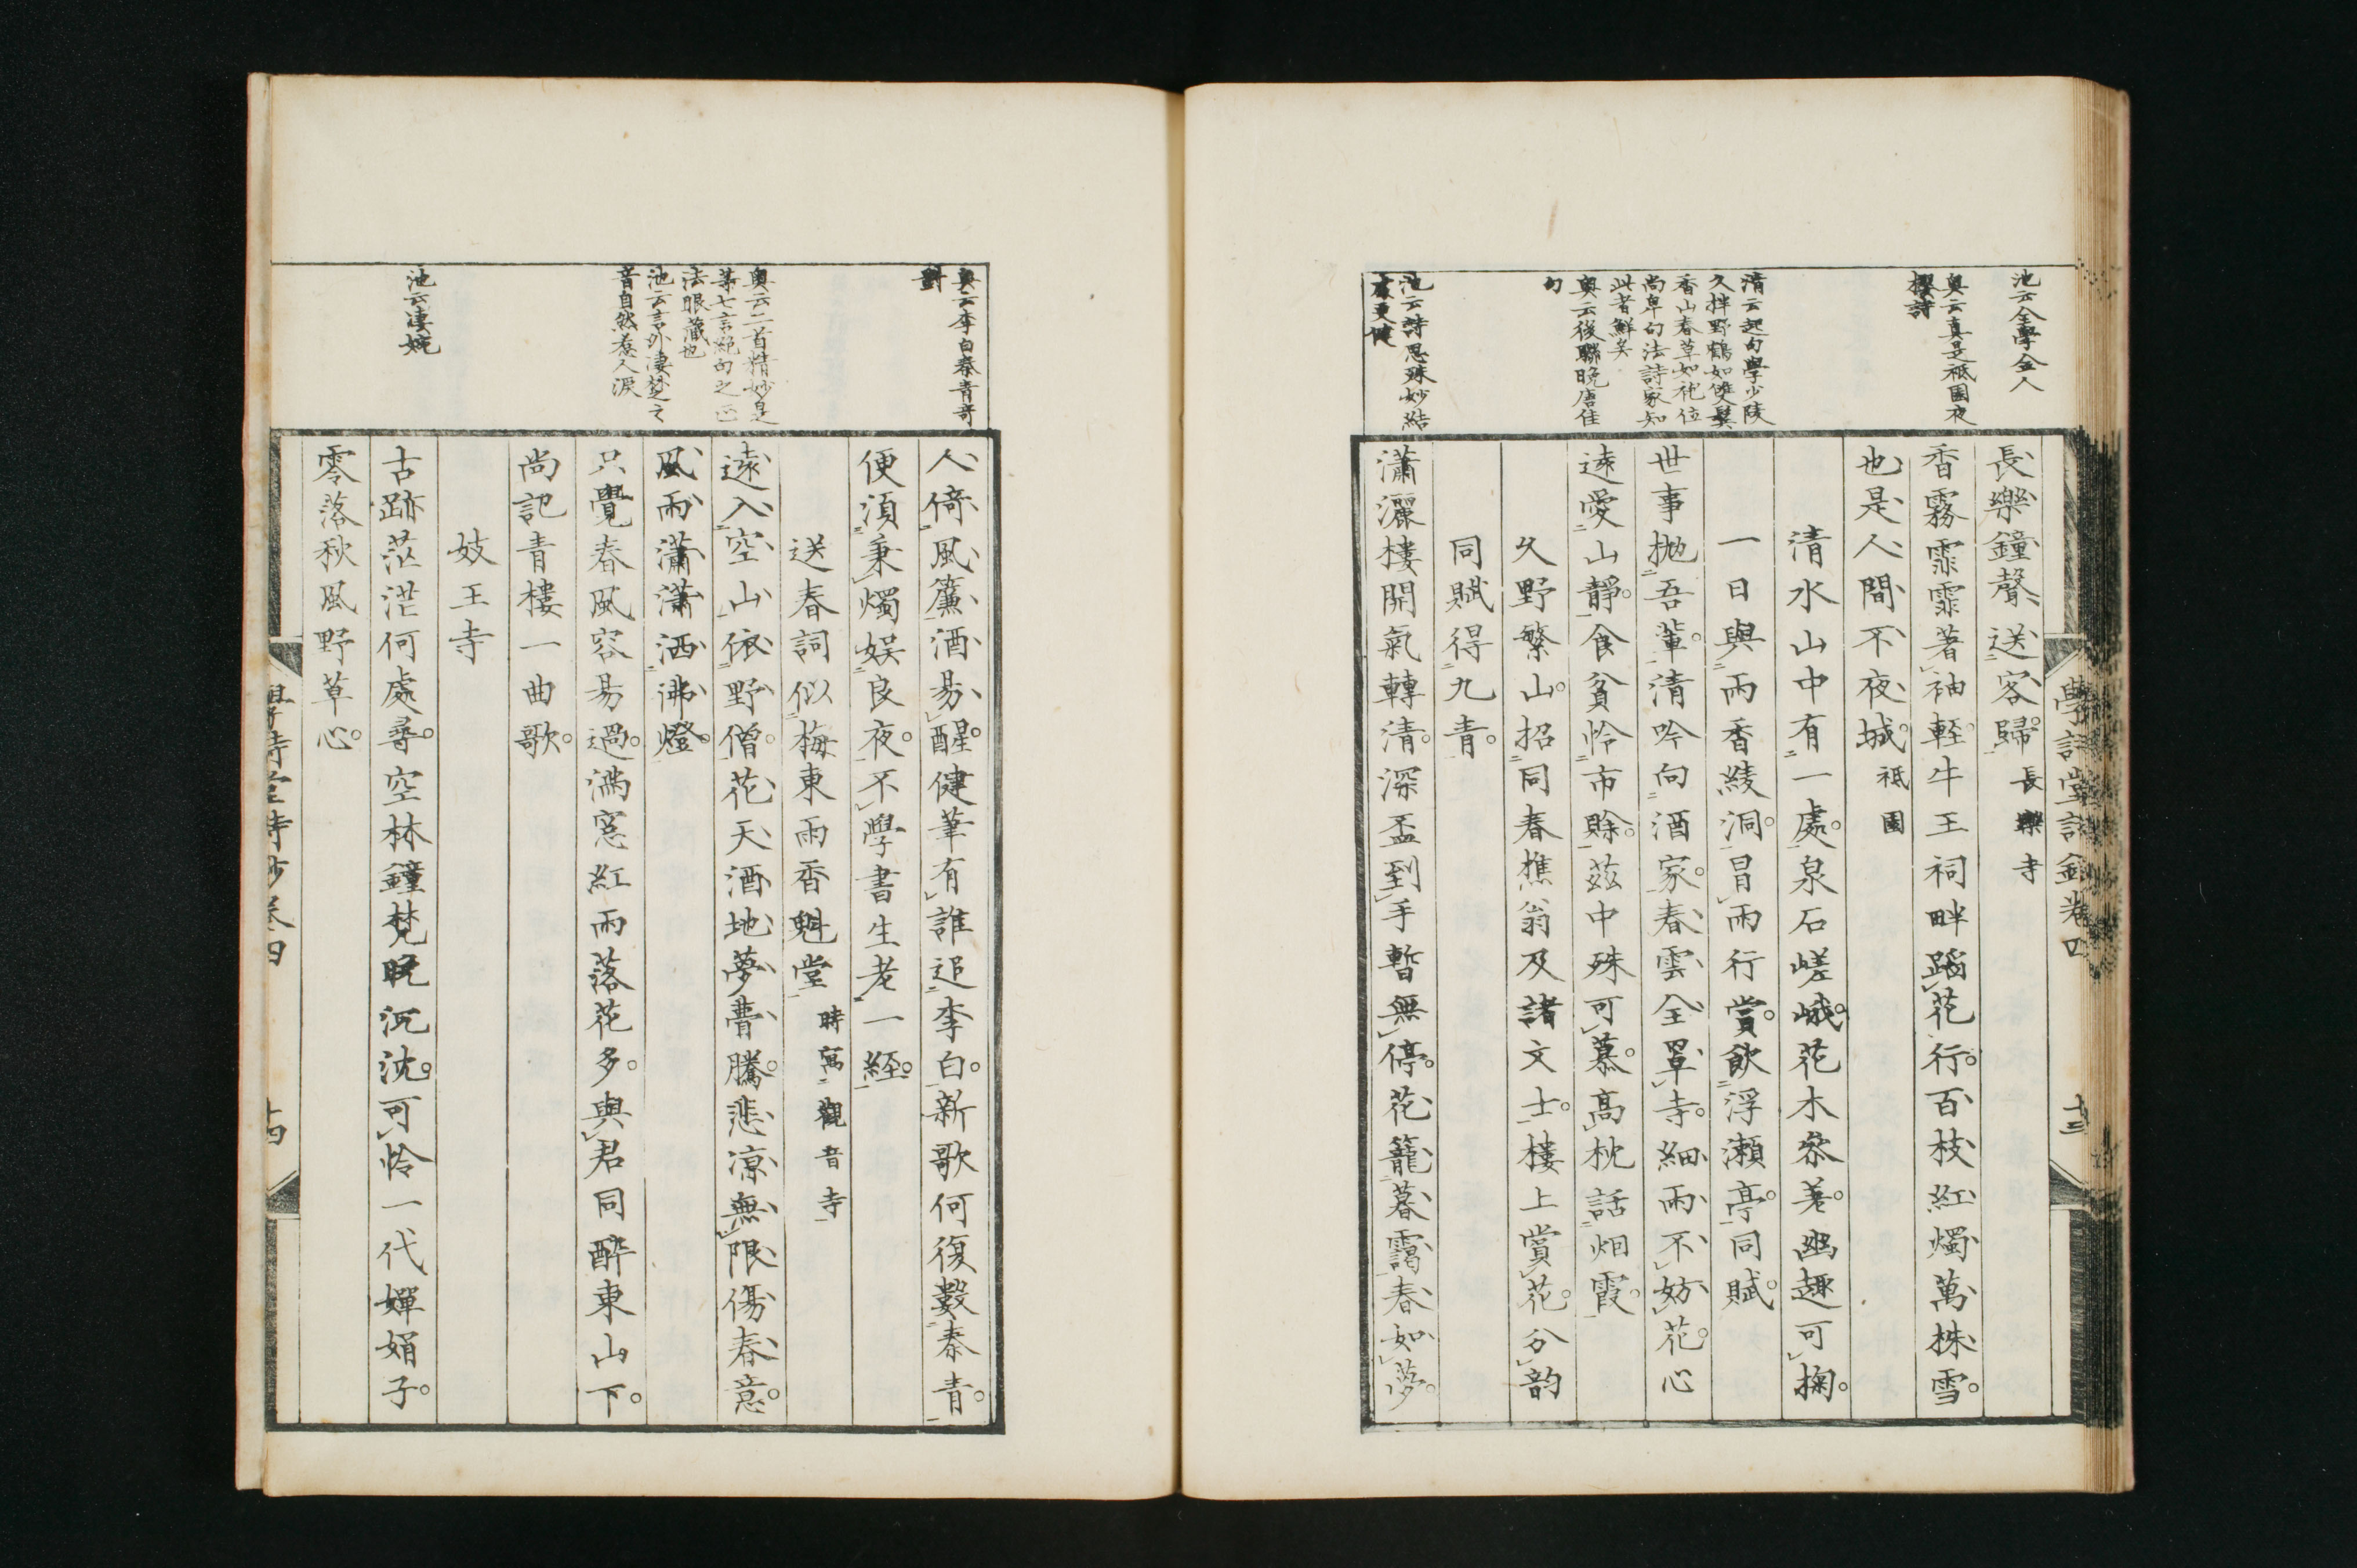 池云全學金人
奧云真是祗園夜
櫻詩
清云起句學少陵
久拌野鶴如雙鬂
香山春草如花位
尚卑句法詩家知
此者鮮矣
奧云後聯晚唐佳
句
池云詩思殊妙結
長樂鐘聲送客歸長樂寺
香霧霏霏著袖輕牛王祠畔蹈花行百枝紅燭萬株雪
也是人間不夜城祗園
清水山中有一處泉石嵯峨花木參差幽趣可掬
一日與雨香綾洞冒雨行賞飲浮瀨亭同賦
世事拋吾輩清吟向酒家春雲全罩寺細雨不妨花心
遠愛山靜食貧怜市賒茲中殊可慕高枕話烟霞
久野繁山招同春樵翁及諸文士樓上賞花分韵
同賦得九青
瀟灑樓開氣轉清深盃到手暫無停花籠暮靄春如夢
學詩堂詩鈔卷四
十三
奧云李白秦青奇
對
奧云二首精妙是
第七言絕句之正
法眼藏也
池云言外淒楚之
音自然惹人淚
池云淒婉
人倚風簾酒易醒健筆有誰追李白新歌何復數秦青
便須秉燭娛良夜不學書生老一經
送春詞似梅東雨香魁堂時寓觀音寺
遠入空山依野僧花天酒地夢瞢騰悲涼無限傷春意
風雨瀟瀟洒佛燈
只覺春風容易過滿窓紅雨落花多與君同醉東山下
尚記青樓一曲歌
妓王寺
古跡茫茫何處尋空林鐘梵晚沉沈可怜一代嬋娟子
零落秋風野草心
學詩堂詩鈔卷四
十四